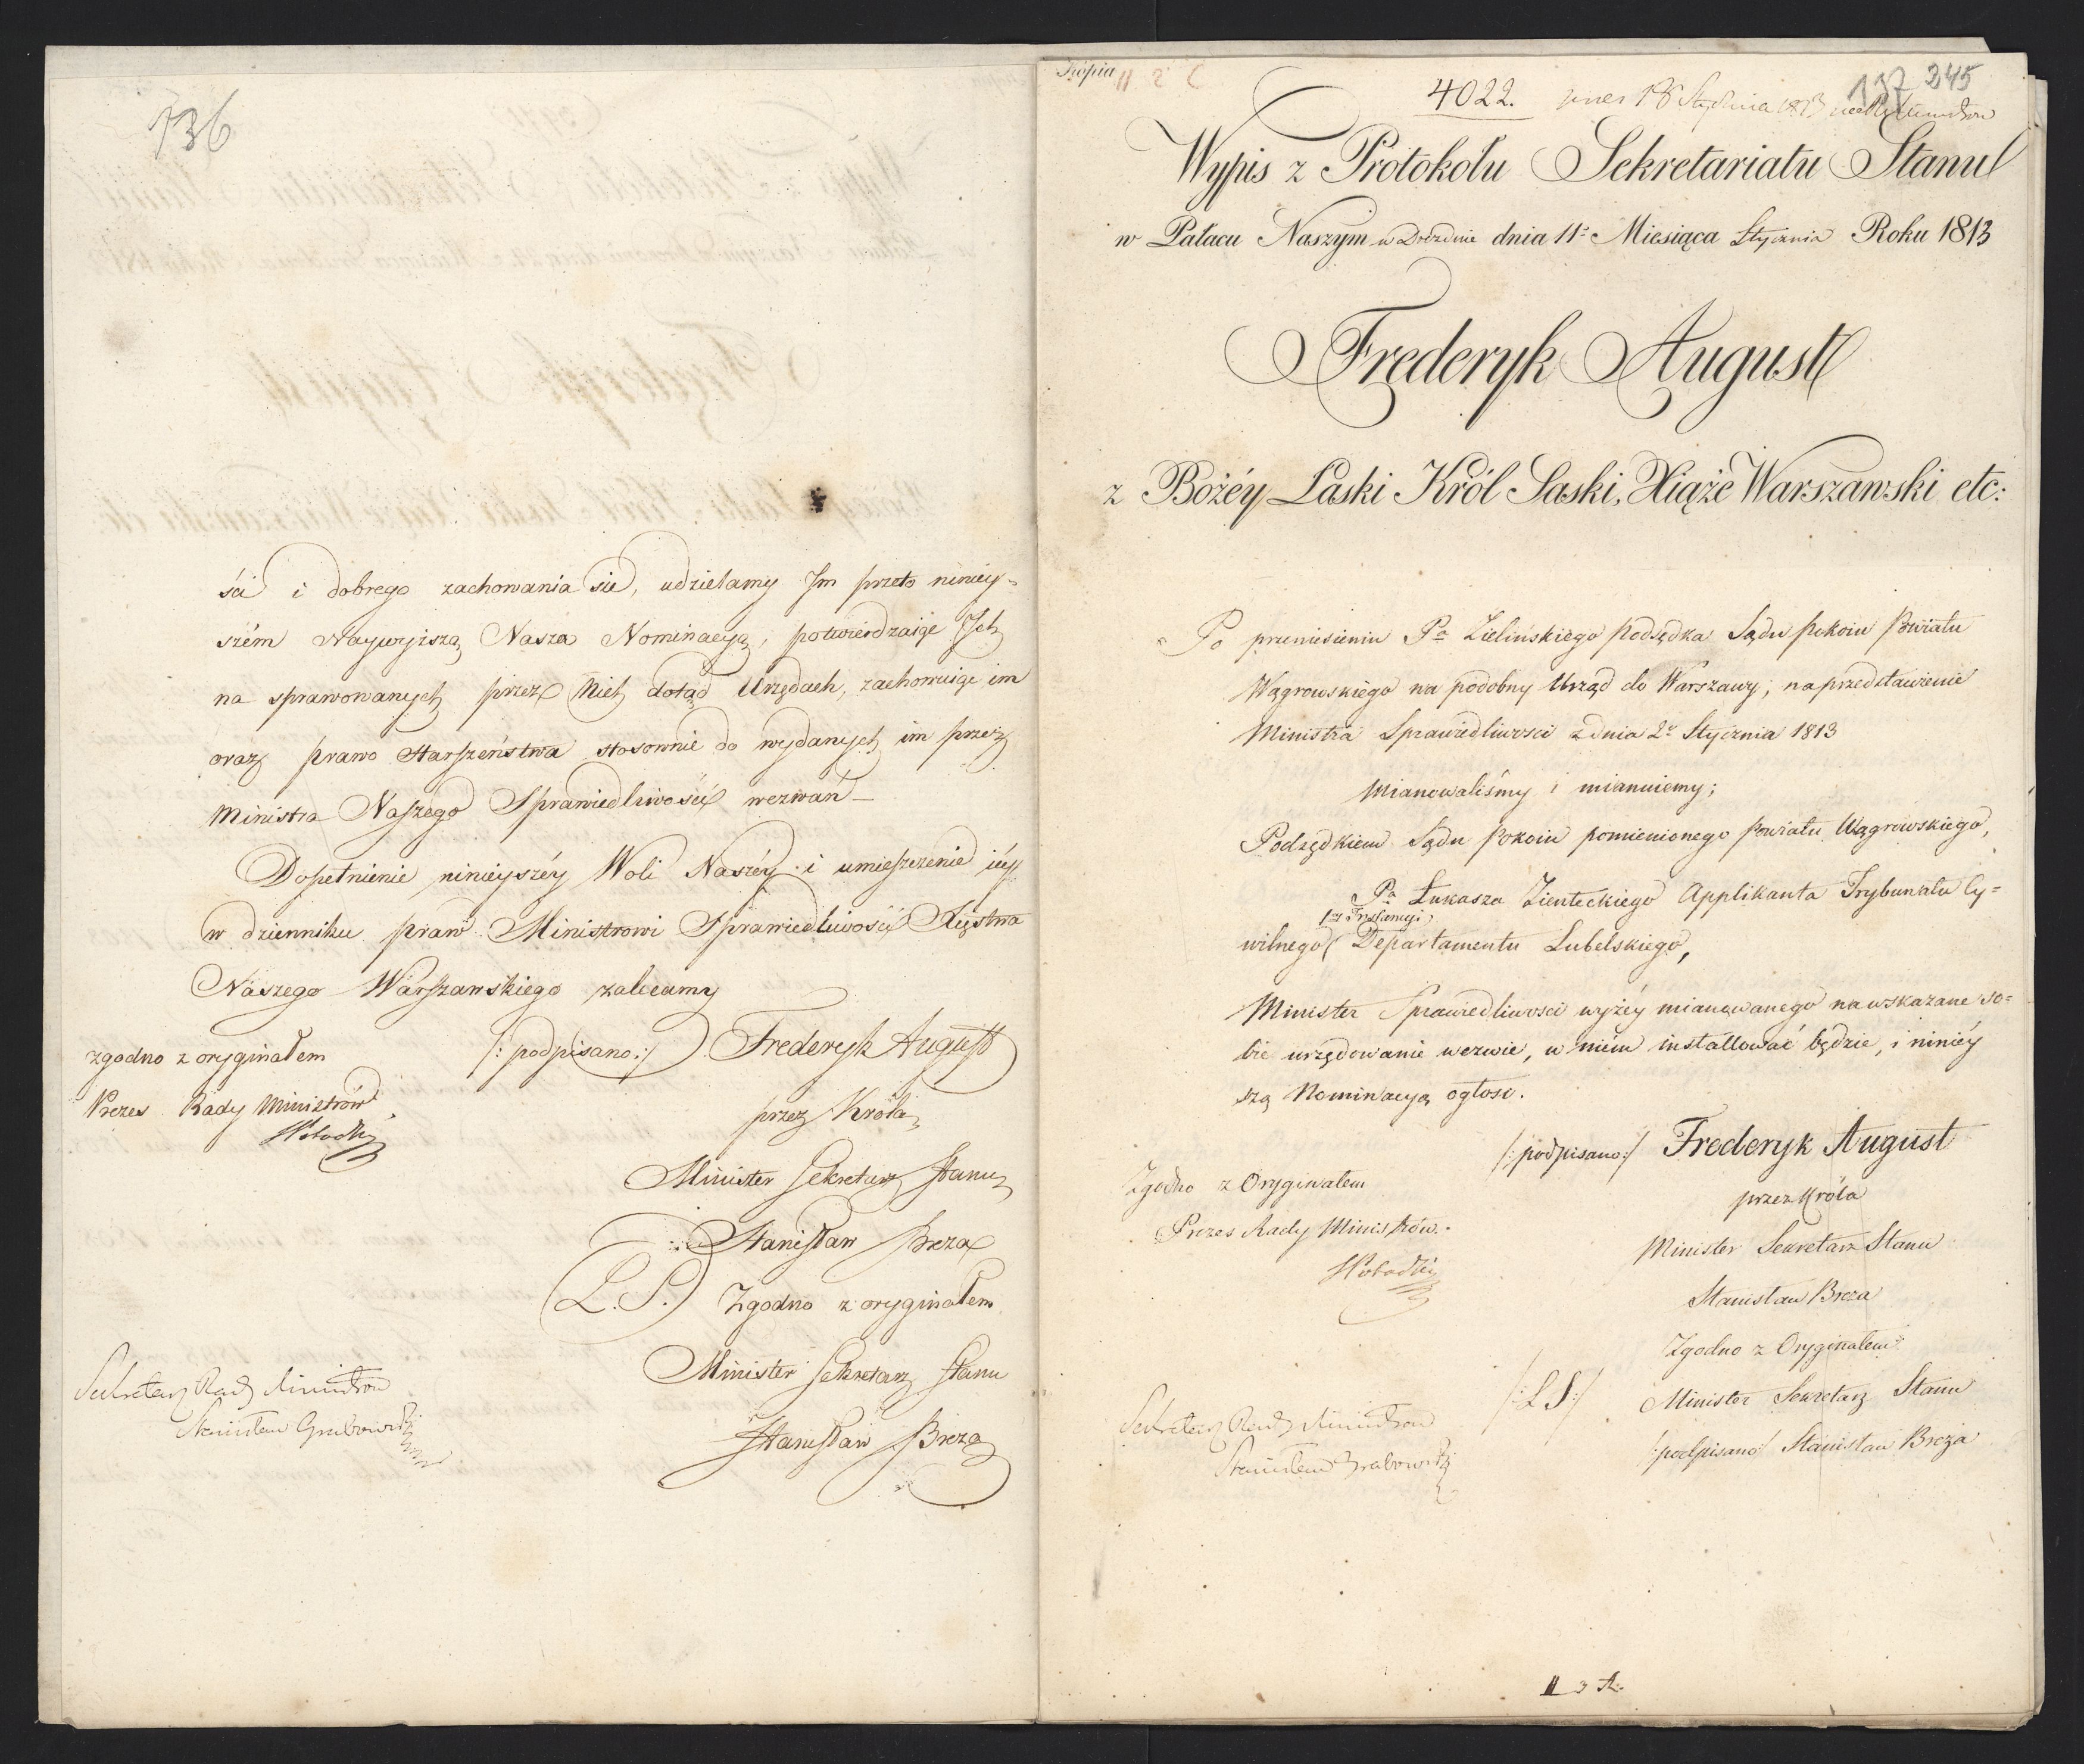 136
ści i dobrego zachowania się, udzielamy Im przeto niniey-
szém Naywyższą Nasza Nominacyą, potwierdzaiąc Ich
na sprawowanych przez Nich dotąd Urzędach, zachowuiąc im
oraz prawo Starszeństwa stosownie do wydanych im przez
Ministra Naszego Sprawiedliwości wezwań —
Dopełnienie ninieyszéy Woli Naszéy i umieszczenie iéy
w dzienniku praw Ministrowi Sprawiedliwości Xięstwa
Naszego Warszawskiego zalecamy
/: podpisano :/ Frederyk August
zgodno z oryginałem
Prezes Rady Ministrów
przez Króla
Minister Sekretarz Stanu
Stanisław Breza
(L. S.) Zgodno z oryginałem
Minister Sekretarz Stanu
Stanisław Breza
Sekretarz Rady Ministrow
Stanisław Grabowski
Kopia
4022. 18 Stycznia 1813
137 245
Wypis z Protokołu Sekretariatu Stanu
w Pałacu Naszym w Dreznie dnia 11º Miesiąca Stycznia Roku 1813
Frederyk August
z Bożéy Łaski Król Saski, Xiąże Warszawski etc:
Po przeniesieniu Pª Zielińskiego Podsędka Sądu Pokoiu Powiatu
Wągrowskiego na podobny Urząd do Warszawy; na przedstawienie
Ministra Sprawiedliwosci z dnia 2º Stycznia 1813
Mianowaliśmy i mianuiemy;
Podsędkiem Sądu Pokoiu pomienionego Powiatu Wągrowskiego,
Pª Łukasza Zienteckiego Applikanta Trybunału Cy=
1éy Instancyi
wilnego Departamentu Lubelskiego,
Minister Sprawiedliwosci wyżéy mianowanego na wskazane so=
bie urzędowanie wezwie, w niém installować będzie, i niniéy
szą Nominacyą ogłosi.
/: podpisano :/ Frederyk August
Zgodno z Oryginałem
przez Króla
Prezes Rady Ministrów.
Minister Sekretarz Stanu
Stanisław Breza
Zgodno z Oryginałem
/: L S :/ Minister Sekretarz Stanu
/: podpisano :/ Stanisław Breza
Sekretarz Rady Ministrow
Stanisław Grabowski